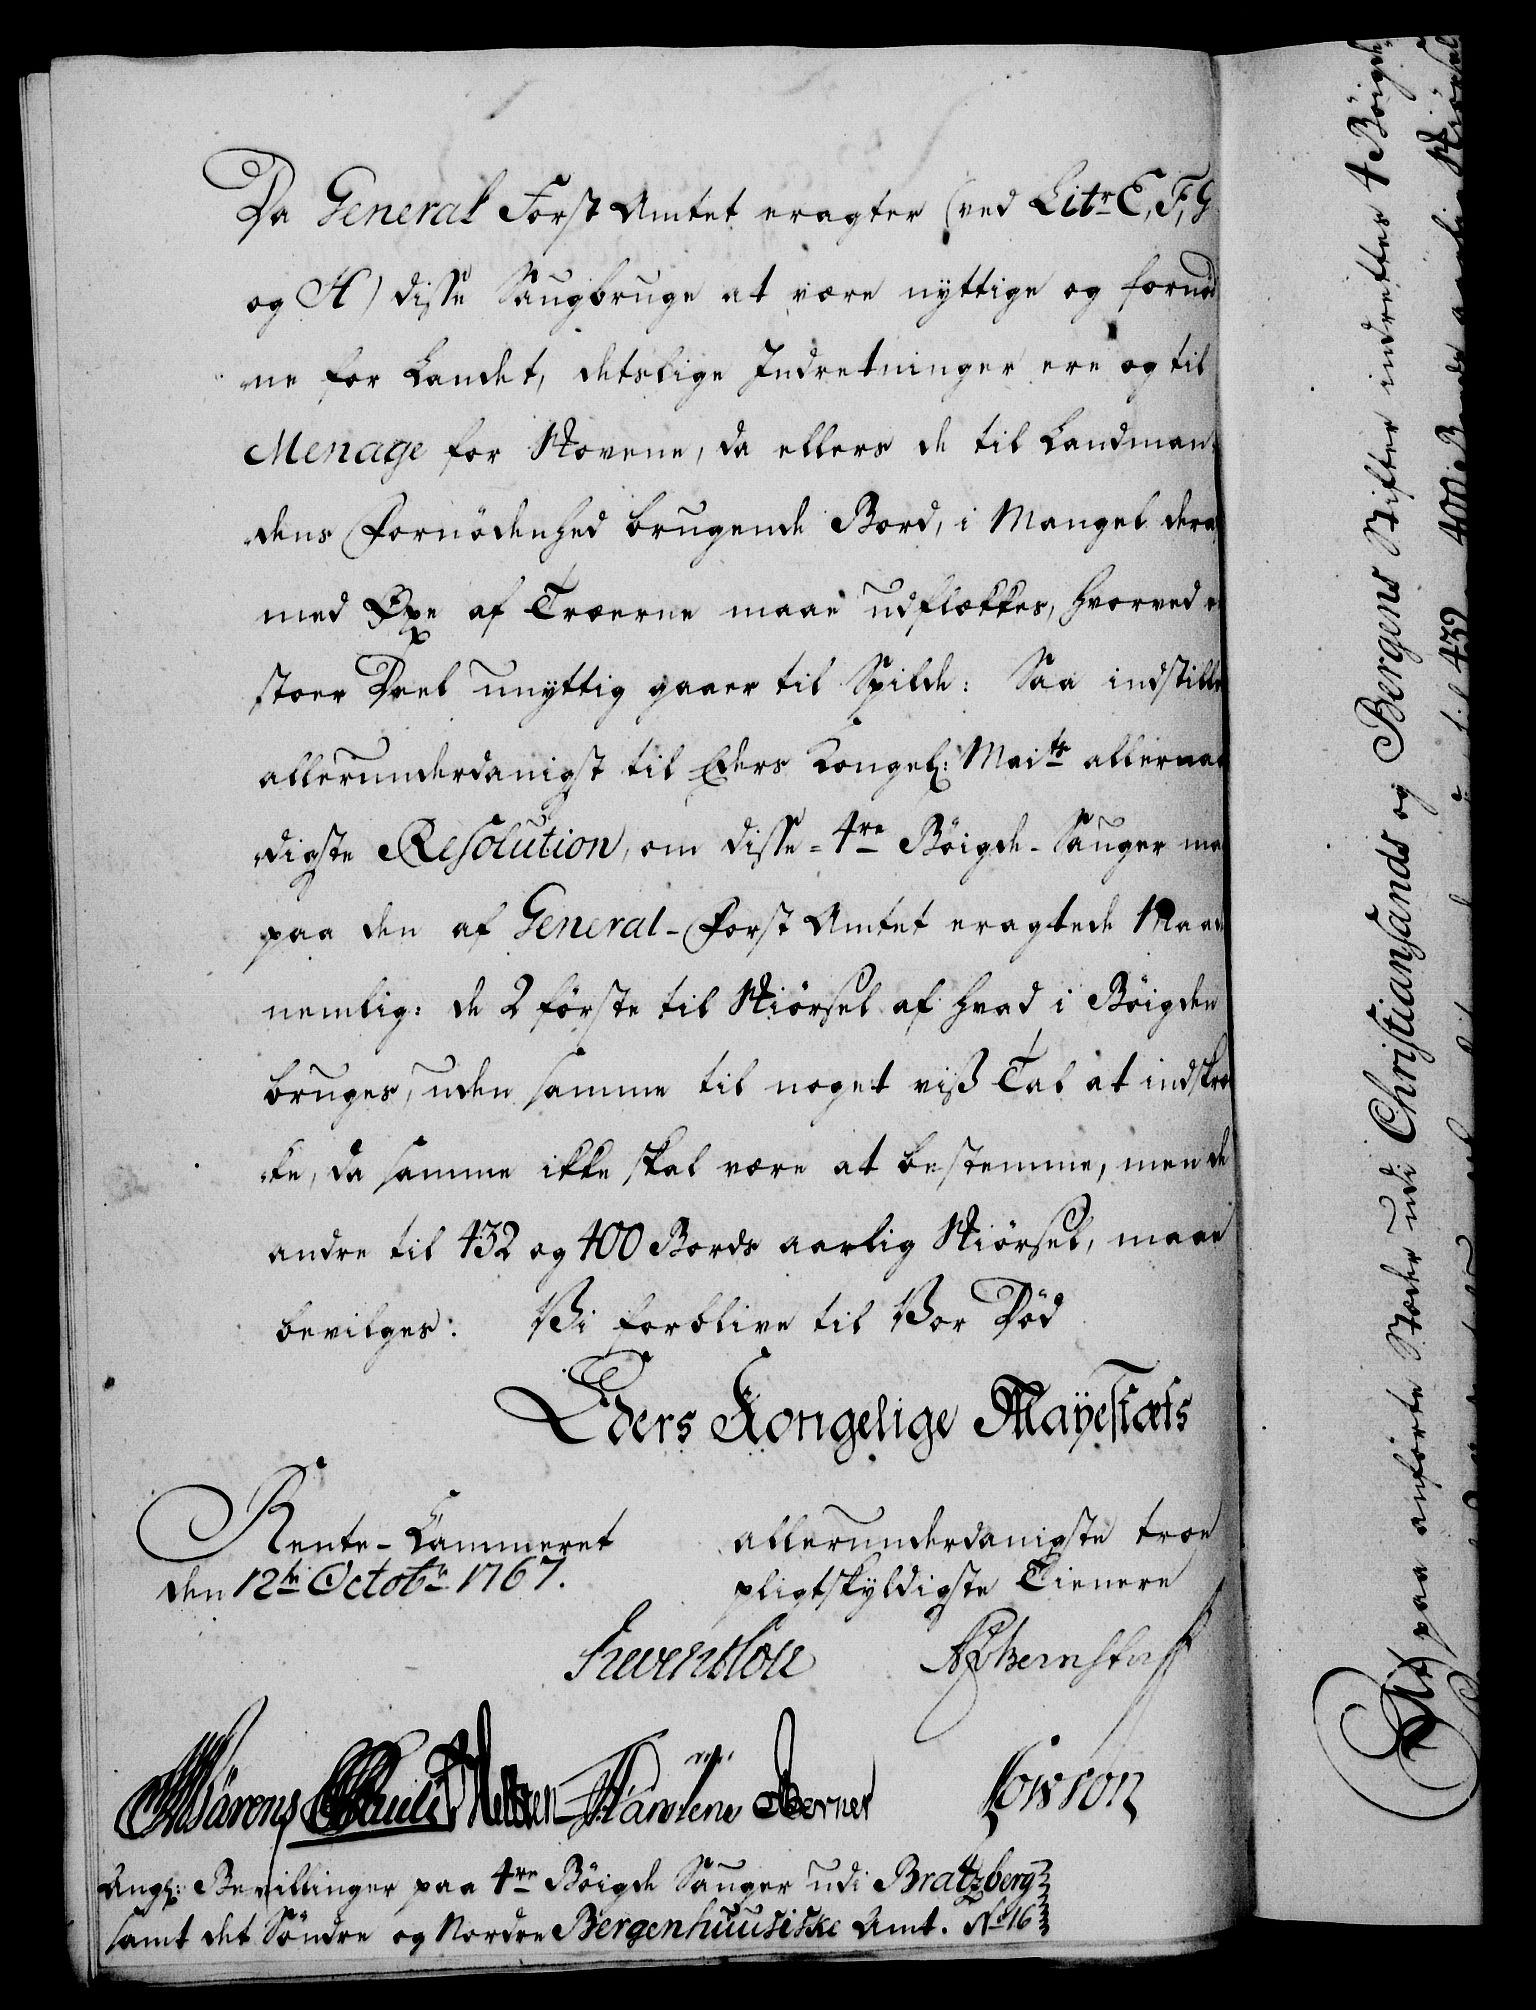 Da General Forst Amtet eragter (ved Litr E, F, G
og H) disse Saugbruge at være nyttige og fornød
ne for Landet, detslige Indretninger ere og til
Menage for Skovene, da ellers de til Landman-
dens Fornødenhed brugende Bord, i Mangel deraf
med Øxe af Træerne maae udflækkes, hvorved en
stoer Deel unyttig gaaer til Spilde: Saa indstilles
allerunderdanigst til Eders Kongel: Maits allernaa
digste Resolution, om disse 4re Böigde-Sauger maa
paa den af General-Forst Amtet eragtede Maade
nemlig: de 2 förste til Skiörsel af hvad i Böigden
bruges, uden samme til noget viß Tal at indskræn
ke, da samme ikke skal være at bestemme, men de
andre til 432 og 400 Bords aarlig Skiörsel, maae
bevilges: Vi forblive til Vor Död
Eders Kongelige Mayestæts
Rente-Cammeret
den 12te Octobr 1767.
allerunderdanigste troe
pligtskyldigste Tienere
Reventlow
Bärens
Berner
Lowson
Angl: Bevillinger paa 4re Böigde Sauger udi Bratzberg
samt det Söndre og Nordre Bergenhuusiske Amt. No 16
At paa anförte Stæder udi Christiansands og Bergens Stifter indrettes 4 Böigde
432 400 Bords aarlig Skiörsel